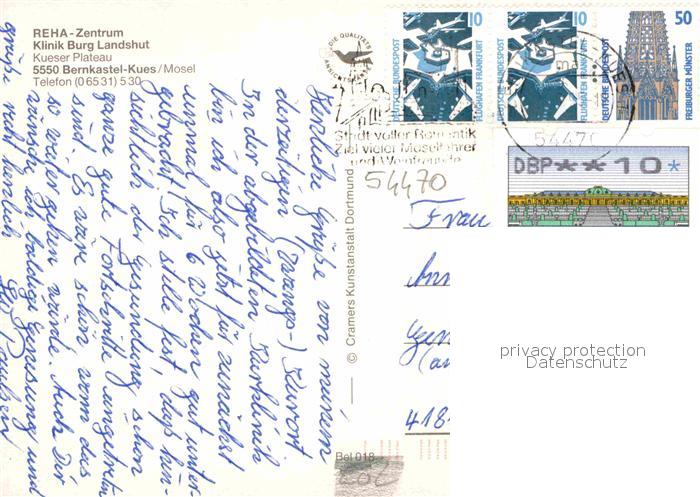 REHA-Zentrum
Klinik Burg Landshut
Kueser Plateau
5550 Bernkastel-Kues/Mosel
Telefon (06531) 530
Herzliche Grüße von meinem
derzeitigen (Zwangs-) Kurort
In der abgebildeten Kurklinik
bin ich also jetzt für zunächst
einmal für 6 Wochen gut unter-
gebracht. Ich stelle fest, daß hin-
sichtlich der Gesundung schon
ganze gute Fortschritte eingetreten
sind. Es wäre schön, wenn das
so weiter gehen würde. Auch Dir
wünsch ich baldige Genesung und
grüße recht herzlich
© Cramers Kunstanstalt Dortmund
Bel 018
DIE QUALITÄTS
ANSICHTSKARTE
Stadt voller Romantik
Ziel vieler Moselfahrer
und Weinfreunde
54470
10
DEUTSCHE BUNDESPOST
FLUGHAFEN FRANKFURT
10
DEUTSCHE BUNDESPOST
FLUGHAFEN FRANKFURT
50
DEUTSCHE BUNDESPOST
FREIBURGER MÜNSTER
54470
DBP**10*
Frau
418
privacy protection
Datenschutz